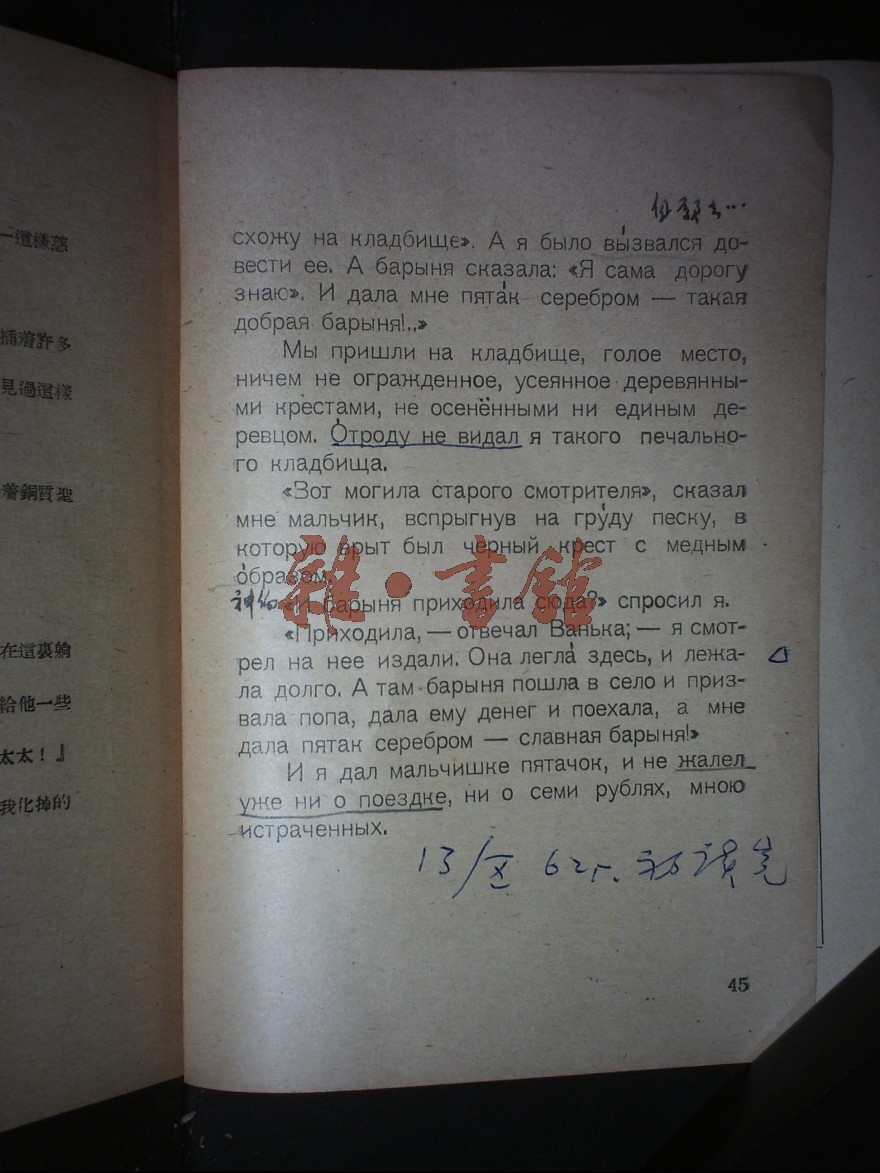 一這樣惑
插着許多
見過這樣
着銅質聖
在這裏躺
給他一些
太太！』
我化掉的
схожу на кладбище». А я было вы́звался до-
вести ее. А барыня сказала: «Я сама дорогу
знаю». И дала мне пята́к серебром — такая
добрая барыня!..»
Мы пришли на кладбище, голое место,
ничем не огражденное, усеянное деревянны-
ми крестами, не осенёнными ни единым де-
ревцом. О́троду не видал я такого печально-
го кладбища.
«Вот могила старого смотрителя», сказал
мне мальчик, вспрыгнув на гру́ду песку, в
которую врыт был чёрный крест с медным
о́бразом.
«И барыня приходила сюда?» спросил я.
«Приходила, — отвечал Ванька; — я смот-
рел на нее издали. Она легла́ здесь, и лежа-
ла долго. А там барыня пошла в село и приз-
вала попа, дала ему денег и поехала, а мне
дала пятак серебром — славная барыня!»
И я дал мальчишке пятачок, и не жалел
уже ни о поездке, ни о семи рублях, мною
истраченных.
13/X 62г.
45
雜·書館